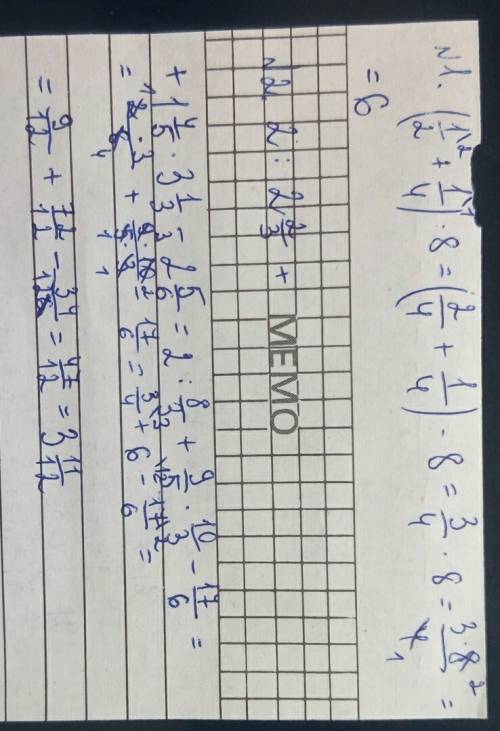 N1. (1/2 + 1/4) · 8 = (2/4 + 1/4) · 8 = 3/4 · 8 = 3·8/4 =
= 6
N2 2 : 2 2/3 +
MEMO
+ 1 4/5 · 3 1/3 - 2 5/6 = 2 : 8/3 + 9/5 · 10/3 - 17/6 =
= 2·3/8 + 9·10/5·3 - 17/6 = 3/4 + 6 - 17/6 =
= 9/12 + 72/12 - 34/12 = 47/12 = 3 11/12